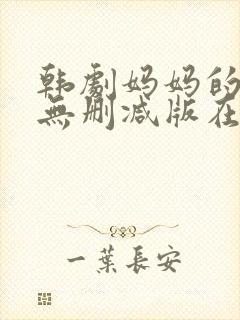 韩劇妈妈的
無删减版在
一葉長安